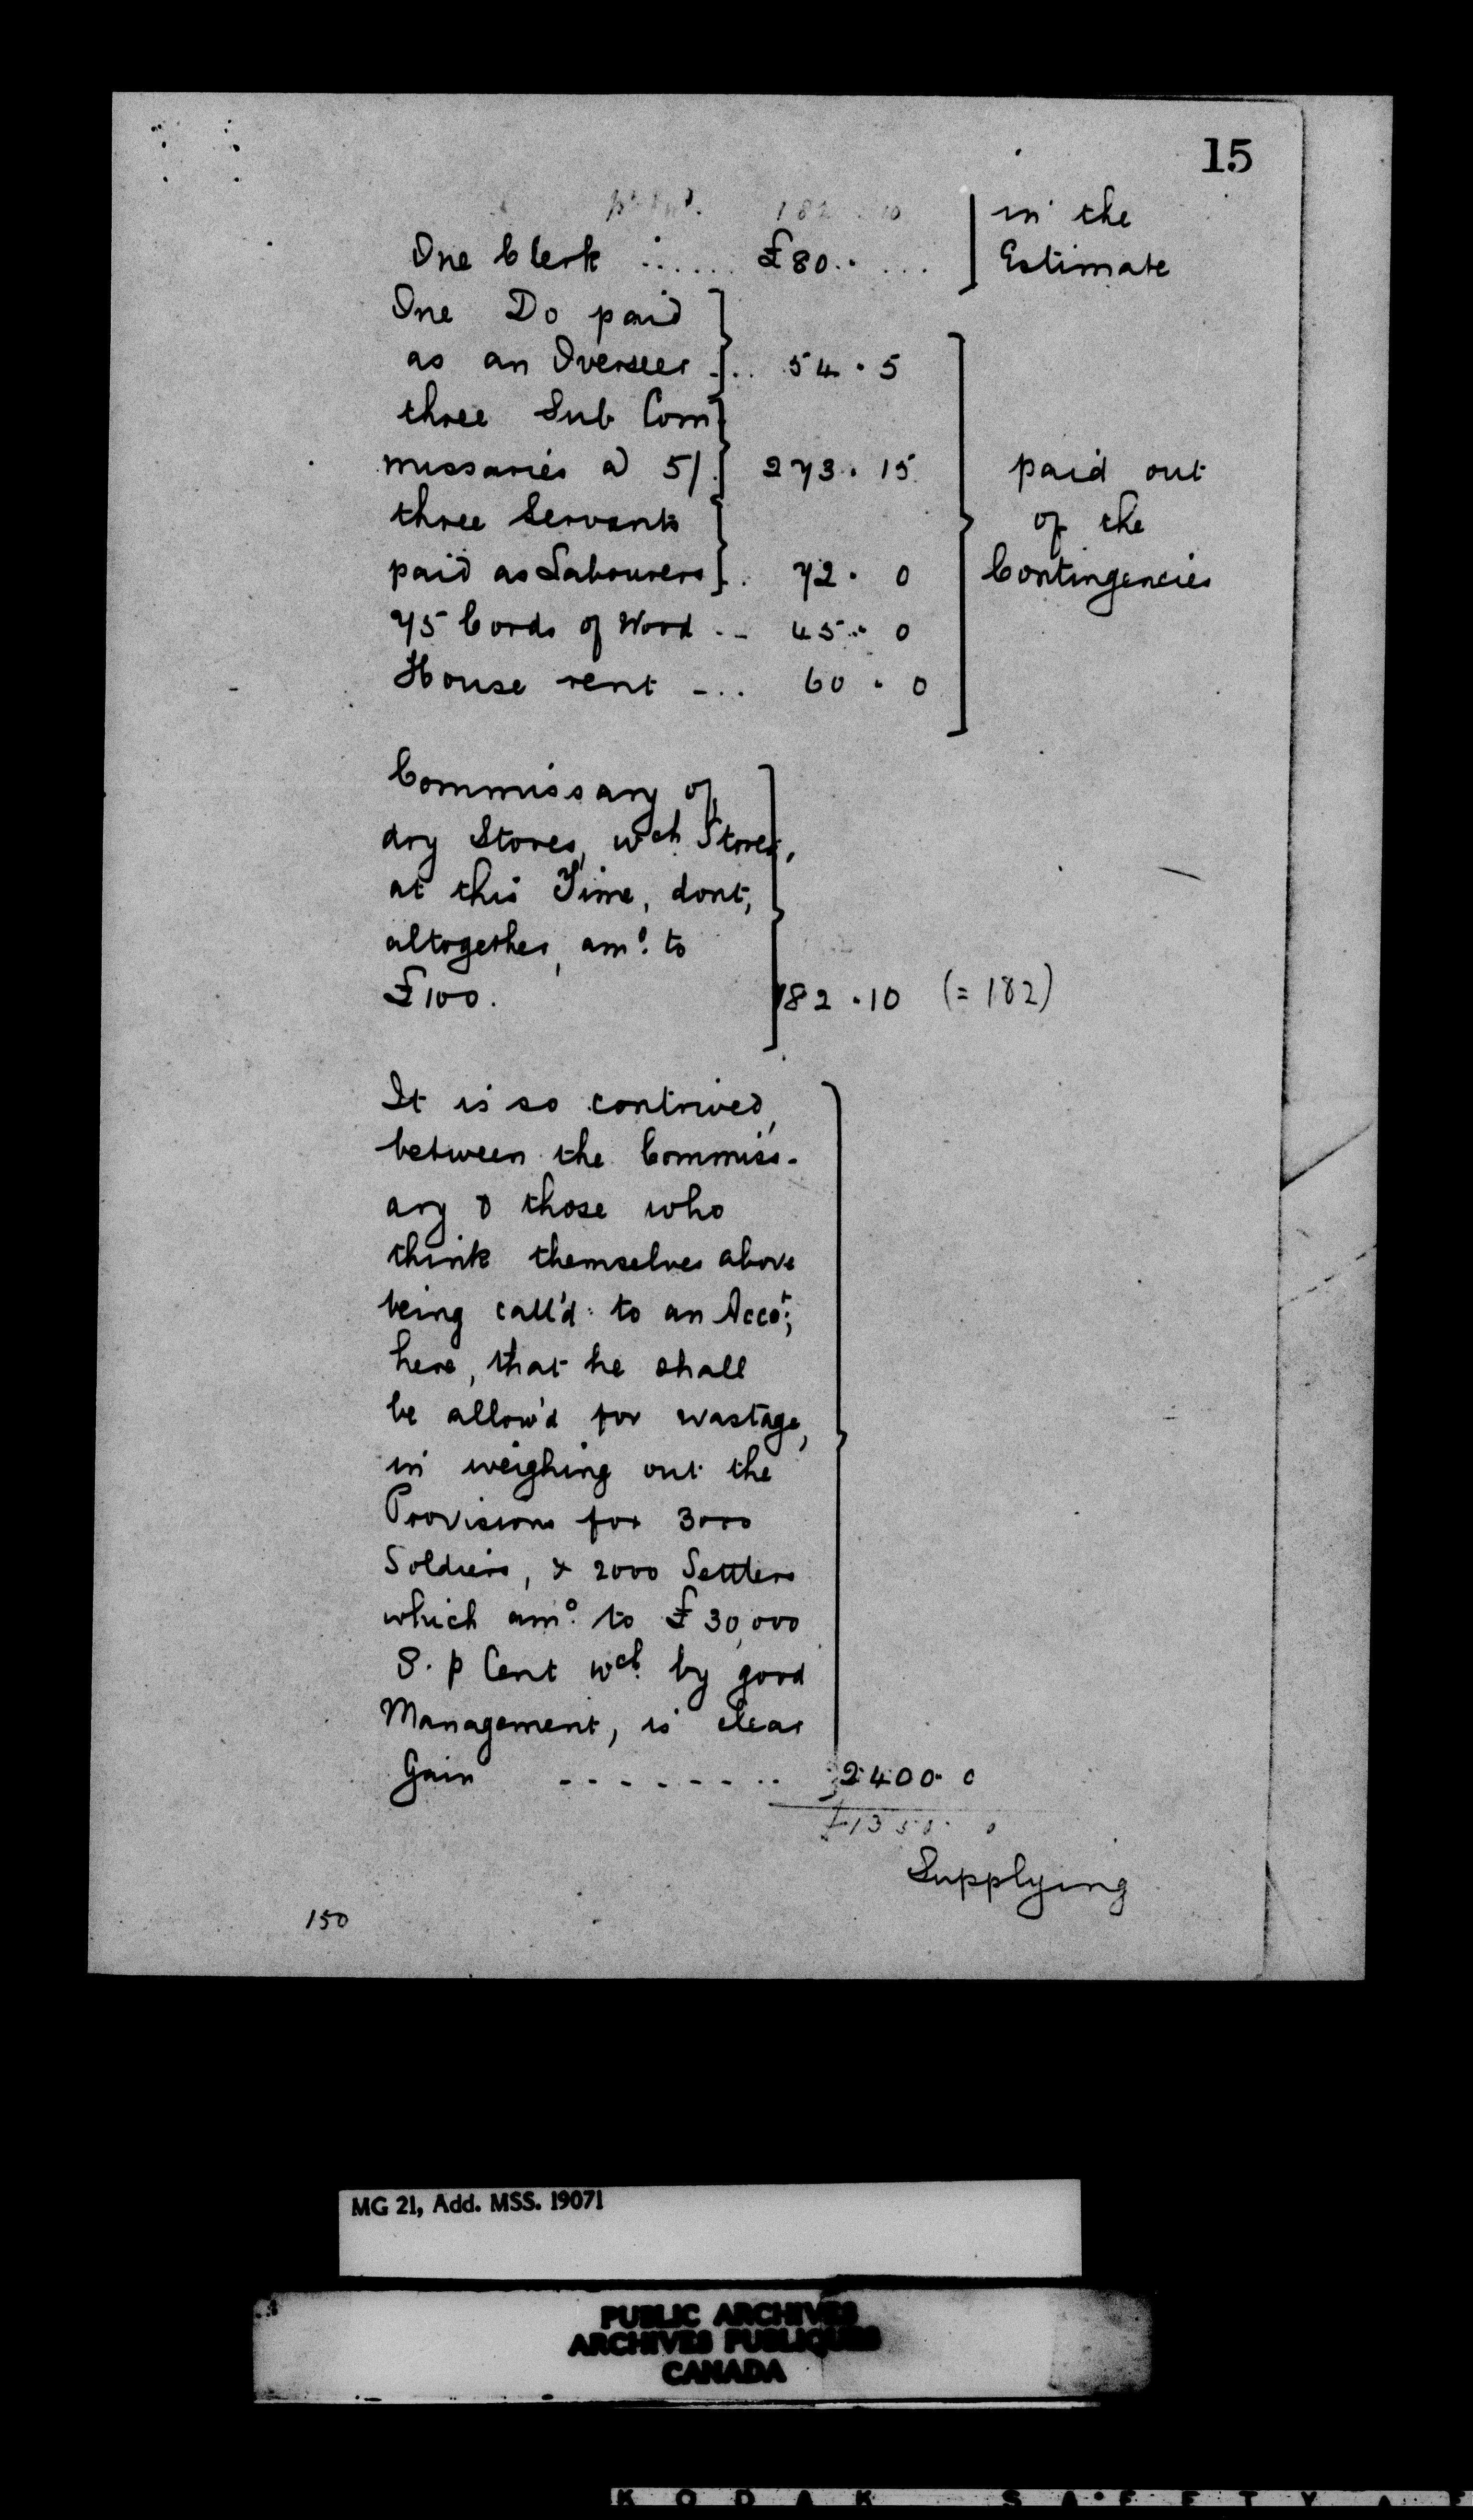 15
182 10 in the
One Clerk ...... £80.. ... Estimate
One Do paid
as an Overseer ... 54 . 5
three Sub Com
missaries @ 5/. 273 . 15
paid out
three Servants
of the
paid as Labourers . 72 . 0
Contingencies
75 Cords of Wood .. 45 . 0
House rent - .. 60 . 0
Commissary of
dry Stores, wch Stores,
at this Time, dont,
altogether, amo. to
£100. 182 . 10 (= 182)
It is so contrived,
between the Commiss-
ary & those who
think themselves above
being call'd to an Accot;
here, that he shall
be allow'd for wastage,
in weighing out the
Provisions for 3000
Soldiers, & 2000 Settlers
which amo. to £30,000
8. p Cent wch. by good
Management, is clear
Gain - - - - - - - .. 2400. 0
Supplying
150
MG 21, Add. MSS. 19071
PUBLIC ARCHIVES
ARCHIVES PUBLIQUES
CANADA
KODAK SAFETY